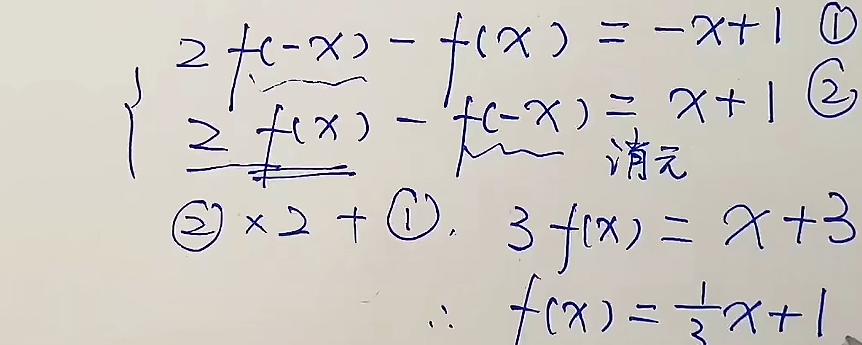 2f(-x) - f(x) = -x+1 ①
2f(x) - f(-x) = x+1 ②
消元
②×2+①. 3f(x) = x+3
∴ f(x) = 1/3 x+1